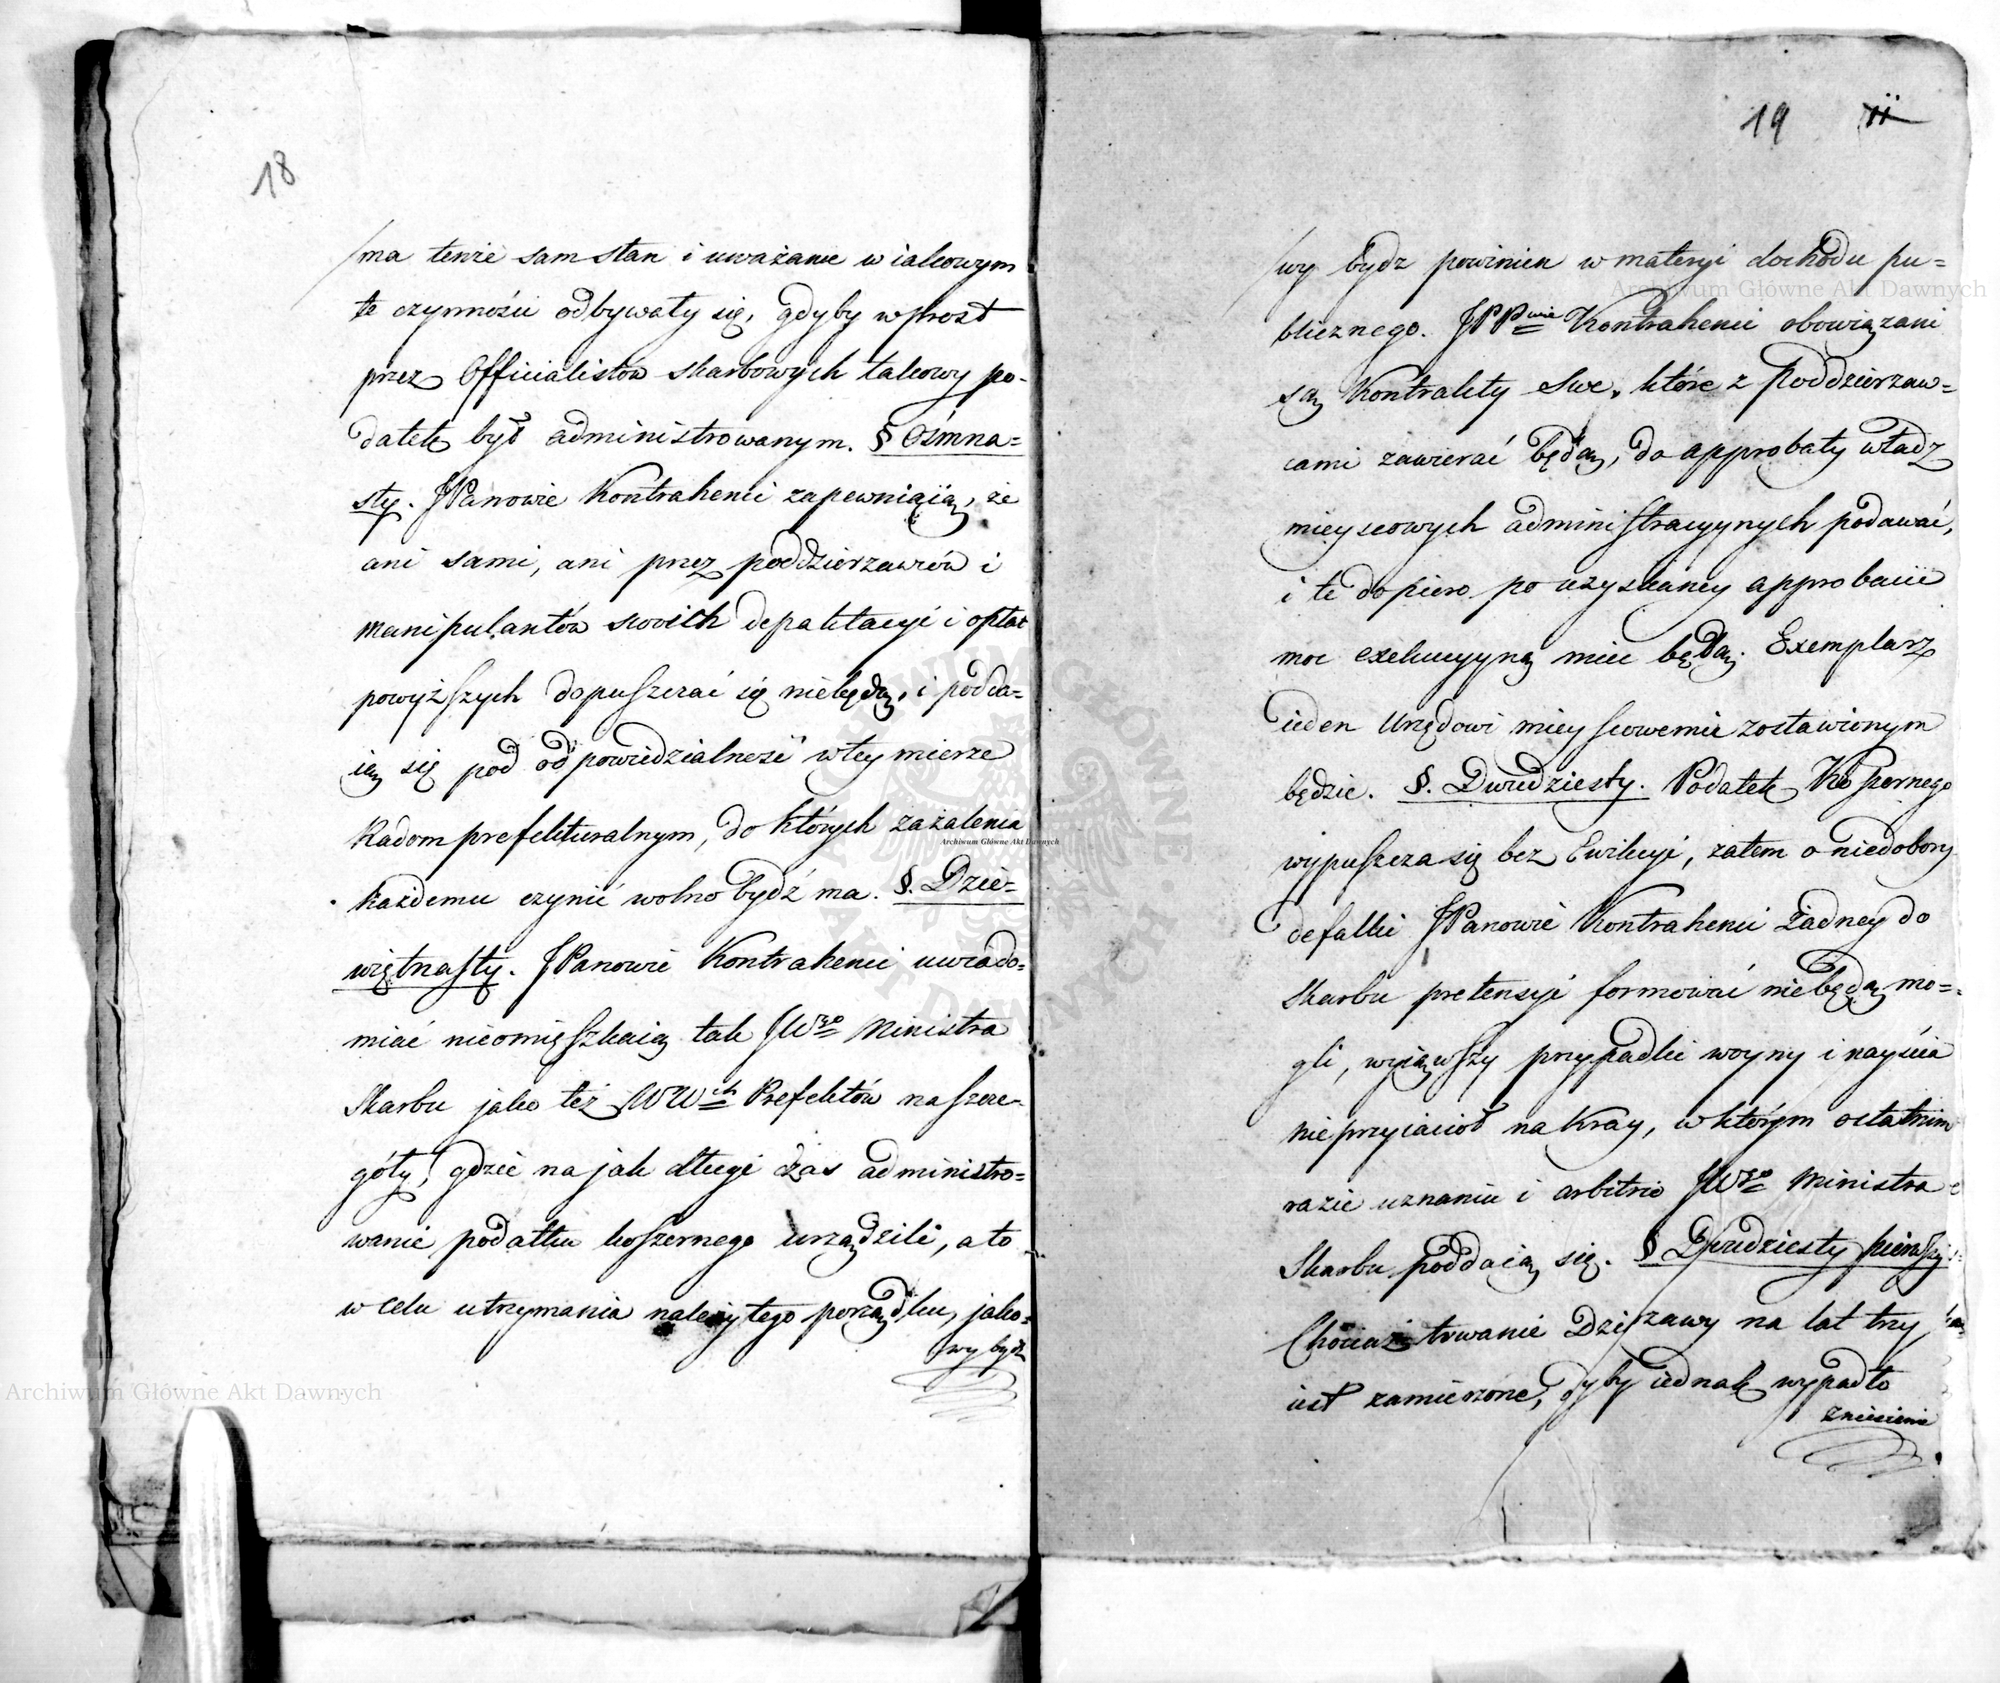 18
ma tenże sam stan i uważanie w iakowym
te czynności odbywały się, gdyby wprost
przez Officialistów skarbowych takowy po-
datek był administrowanym. § Ośmna=
sty. JPanowie Kontrahenci zapewniaią, że
ani sami, ani przez poddzierzawców i
manipulantów swoich depaktacyi i opłat
powyższych dopuszczać się niebędą, i podda-
ią się pod odpowiedzialność w tey mierze
Radom prefekturalnym, do których zażalenia
każdemu czynić wolno bydź ma. §. Dzie=
więtnasty. JPanowie Kontrahenci uwiado=
miać nieomięszkaią tak JWgo Ministra
Skarbu jako też WWch Prefektów na szcze-
góły, gdzie na jak długi czas administro=
wanie podatku koszernego urządzili, a to
w celu utrzymania należytego porządku, jako=
wy bydź
19 11
wy bydz powinien w materyi dochodu pu=
blicznego. JPPwie Kontrahenci obowiązani
są Kontrakty swe, które z poddzierzaw=
cami zawierać będą, do approbaty władz
mieyscowych administracyynych podawać,
i te dopiero po uzyskaney approbacii
moc exekucyyną mieć będą. Exemplarz
ieden Urzędowi mieyscowemu zostawionym
będzie. §. Dwudziesty. Podatek Koszernego
wypuszcza się bez Ewikcyi, zatem o niedobory
defalki JPanowie Kontrahenci żadney do
skarbu pretensyi formować niebędą mo=
gli, wyiąwszy przypadki woyny i nayścia
nieprzyiaciół na Kray, w którym ostatnim
razie uznaniu i arbitrio JWgo Ministra
Skarbu poddaią się. § Dwudziesty pierwszy
Chociaż trwanie Dzierzawy na lat trzy
iest zamierzone, gdyby iednak wypadło
zniesienie
Archiwum Główne Akt Dawnych
Archiwum Główne Akt Dawnych
Archiwum Główne Akt Dawnych
ARCHIWUM GŁÓWNE AKT DAWNYCH